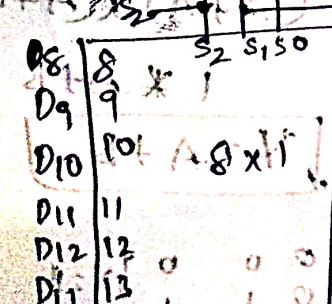 S2
S2 S1 S0
D8 8
D9 9
D10 10
8x1
D11 11
D12 12
D13 13